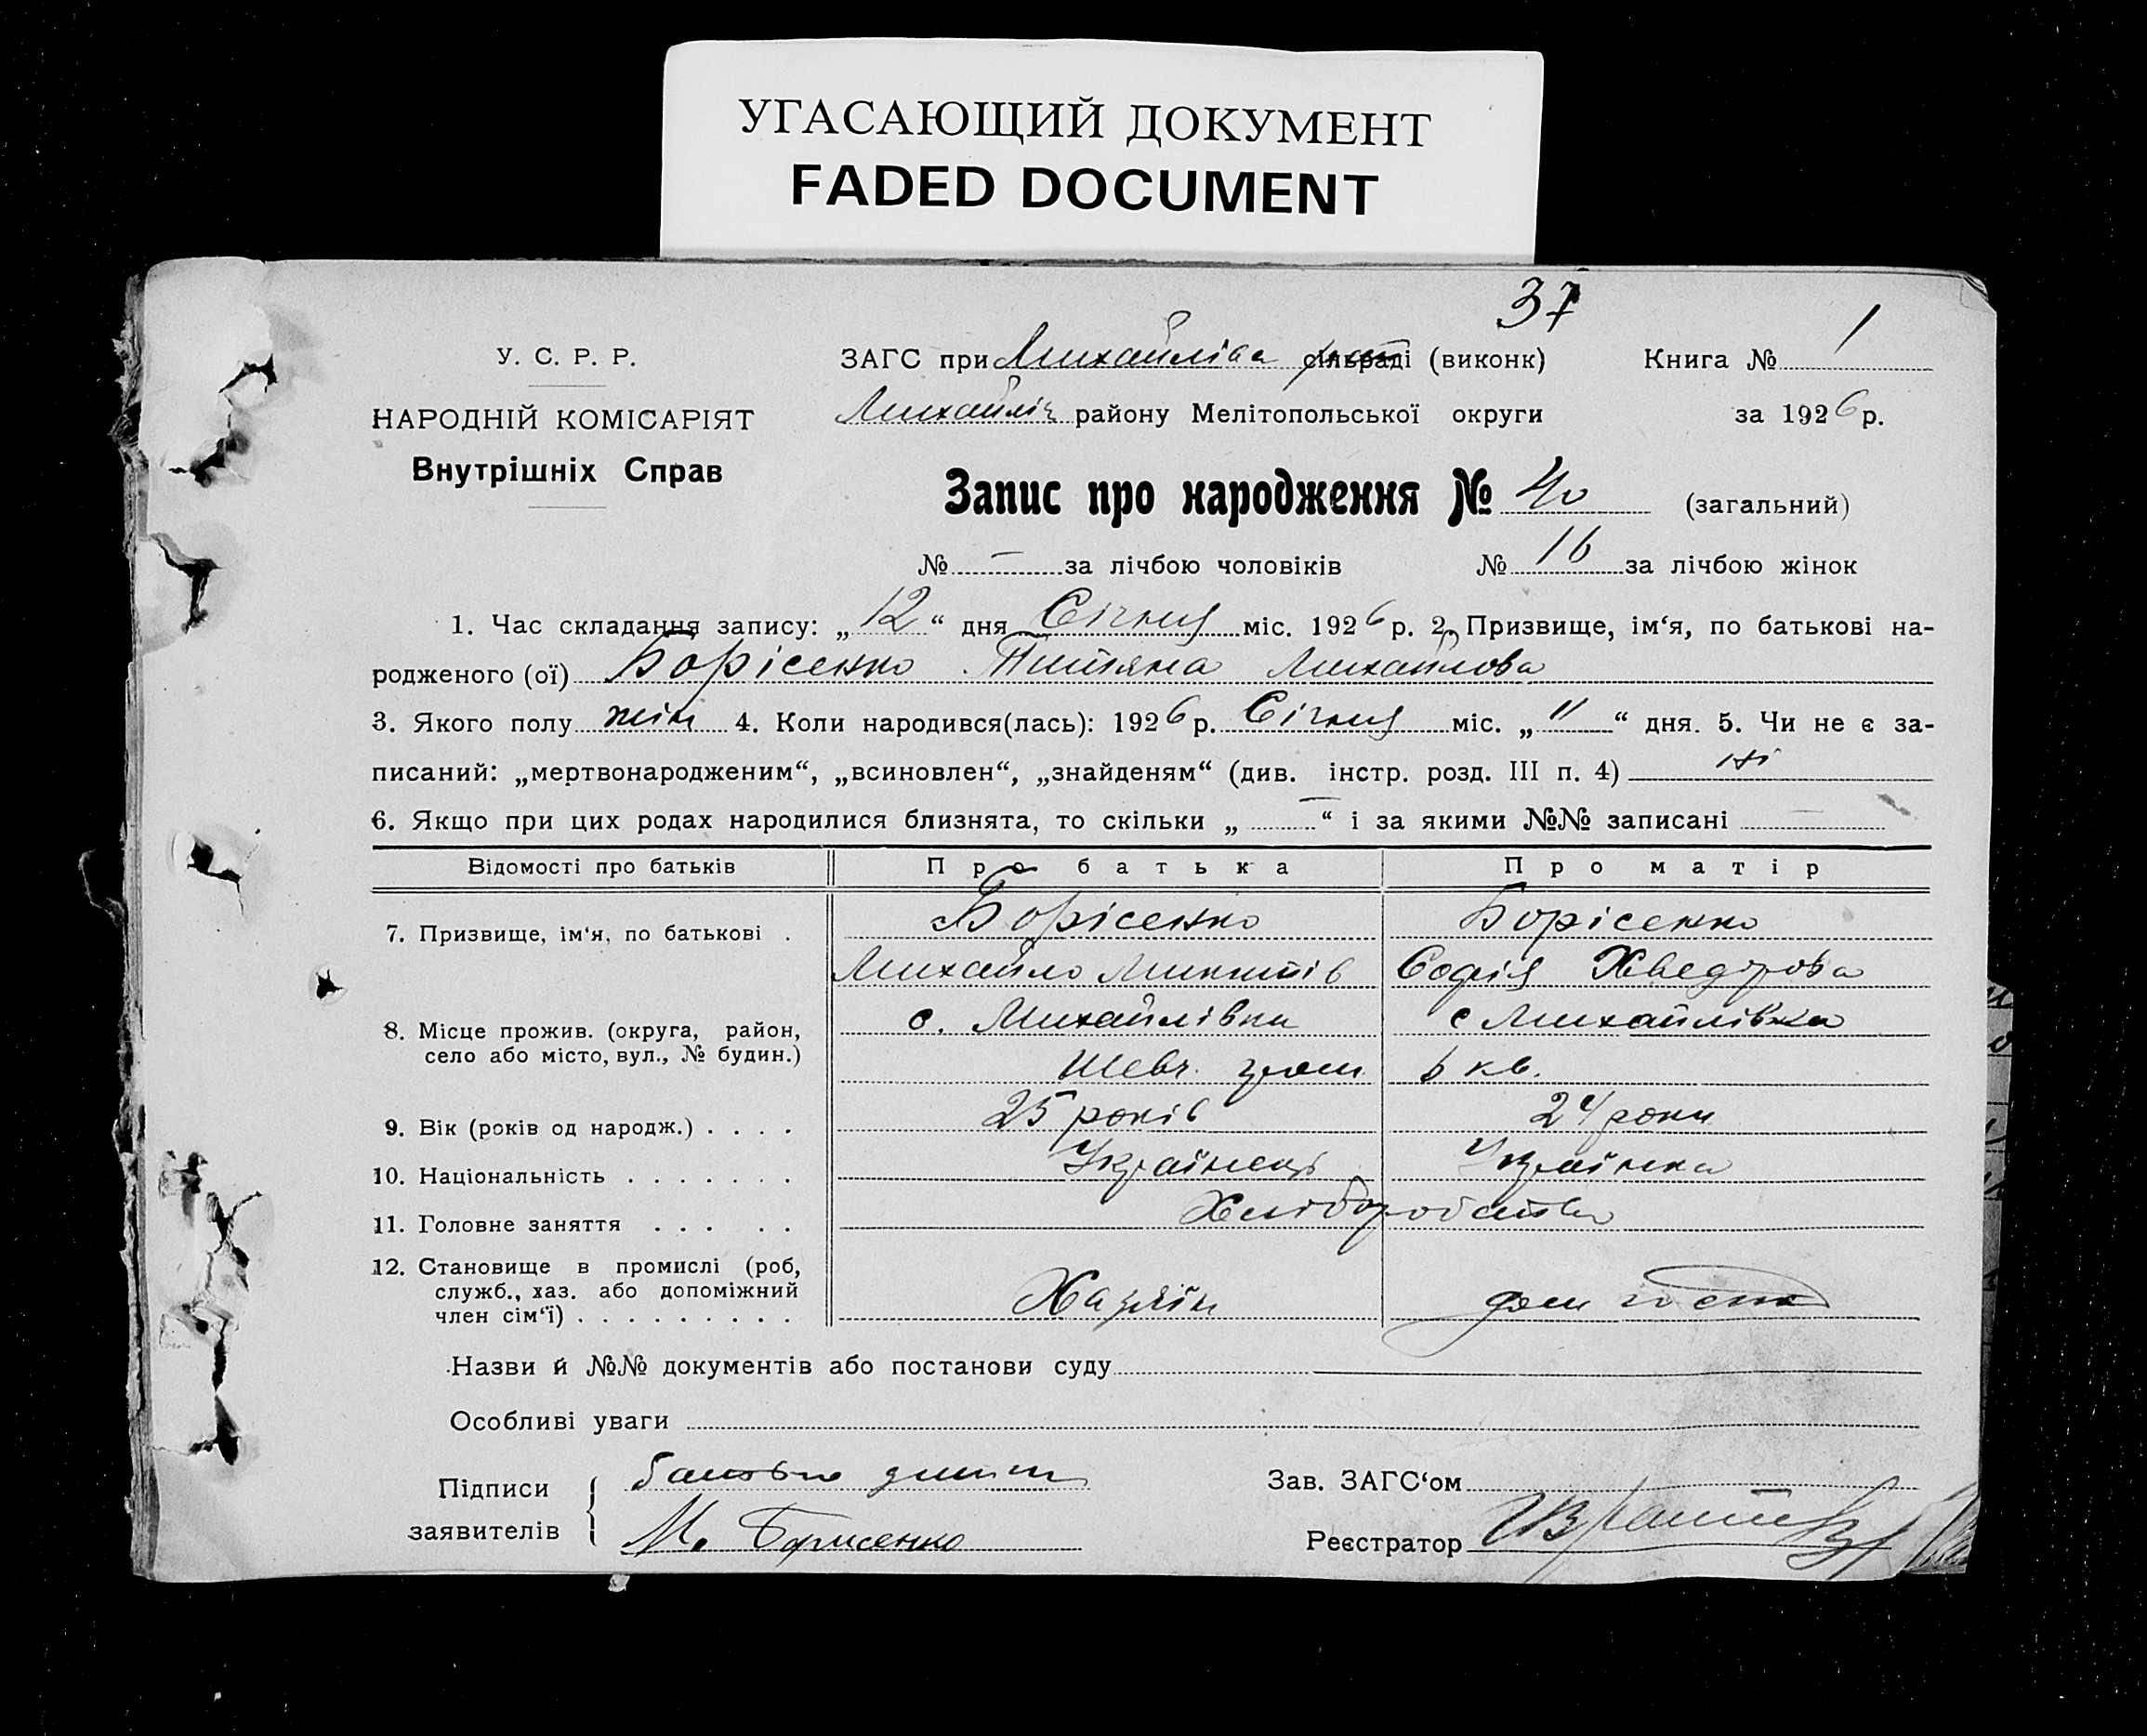 УГАСАЮЩИЙ ДОКУМЕНТ
FADED DOCUMENT
37
У. С. Р. Р.
НАРОДНІЙ КОМІСАРІЯТ
Внутрішніх Справ
ЗАГС при сільраді (виконк) Книга № 1
району Мелітопольської округи за 1926 р.
Запис про народження № 40 (загальний)
№ – за лічбою чоловіків № 16 за лічбою жінок
1. Час складання запису: „12“ дня Січня міс. 1926 р. 2. Призвище, ім‘я, по батькові на-
родженого (ої) Борісенко Титяна Михайлова
3. Якого полу жін 4. Коли народився(лась): 1926 р. Січня міс. „11“ дня. 5. Чи не є за-
писаний: „мертвонародженим“, „всиновлен“, „знайденям“ (див. інстр. розд. III п. 4) ні
6. Якщо при цих родах народилися близнята, то скільки „ – “ і за якими №№ записані –
Відомості про батьків Про батька Про матір
7. Призвище, ім‘я, по батькові . Борісенко Борісенко
Михайло Микитів Софія Хведорова
8. Місце прожив. (округа, район, с. Михайлівки с Михайлівка
село або місто, вул., № будин.) Шевч. гром 6 кв.
9. Вік (років од народж.) . . . . 25 років 24 роки
10. Національність . . . . . . . Українець Українка
11. Головне заняття . . . . . Хліборобство
12. Становище в промислі (роб,
служб., хаз. або допоміжний
член сім‘ї) . . . . . . . . . Хазяїн дом
Назви й №№ документів або постанови суду
Особливі уваги
Підписи заявителів
батько дитини
М. Борисенко
Зав. ЗАГС‘ом
Реєстратор